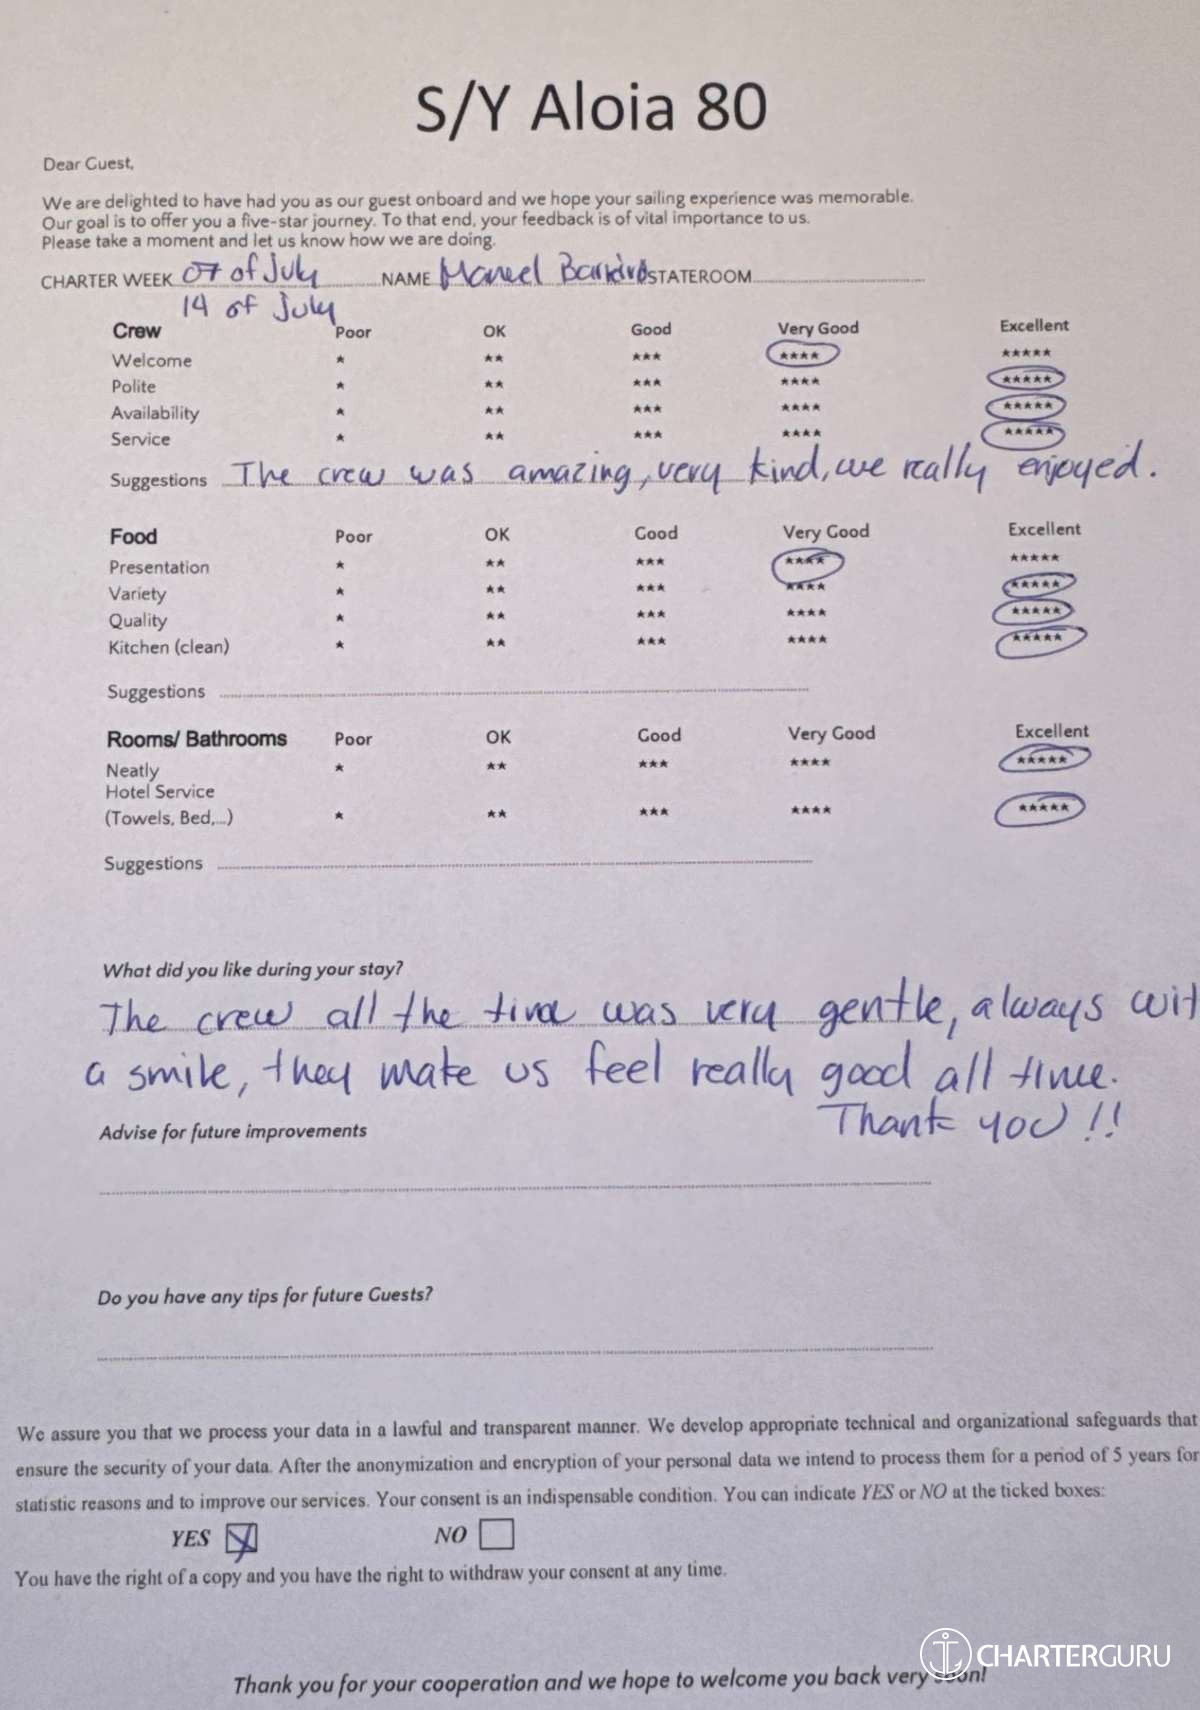 S/Y Aloia 80
Dear Guest,
We are delighted to have had you as our guest onboard and we hope your sailing experience was memorable.
Our goal is to offer you a five-star journey. To that end, your feedback is of vital importance to us.
Please take a moment and let us know how we are doing.
CHARTER WEEK 07 of July NAME STATEROOM
14 of July
Crew Poor OK Good Very Good Excellent
Welcome * ** *** **** *****
Polite * ** *** **** *****
Availability * ** *** **** *****
Service * ** *** **** *****
Suggestions The crew was amazing, very kind, we really enjoyed.
Food Poor OK Good Very Good Excellent
Presentation * ** *** **** *****
Variety * ** *** **** *****
Quality * ** *** **** *****
Kitchen (clean) * ** *** **** *****
Suggestions
Rooms/ Bathrooms Poor OK Good Very Good Excellent
Neatly * ** *** **** *****
Hotel Service
(Towels, Bed,...) * ** *** **** *****
Suggestions
What did you like during your stay?
The crew all the time was very gentle, always wit
a smile, they make us feel really good all time.
Thank you!!
Advise for future improvements
Do you have any tips for future Guests?
We assure you that we process your data in a lawful and transparent manner. We develop appropriate technical and organizational safeguards that
ensure the security of your data. After the anonymization and encryption of your personal data we intend to process them for a period of 5 years for
statistic reasons and to improve our services. Your consent is an indispensable condition. You can indicate YES or NO at the ticked boxes:
YES NO
You have the right of a copy and you have the right to withdraw your consent at any time.
CHARTERGURU
Thank you for your cooperation and we hope to welcome you back very soon!